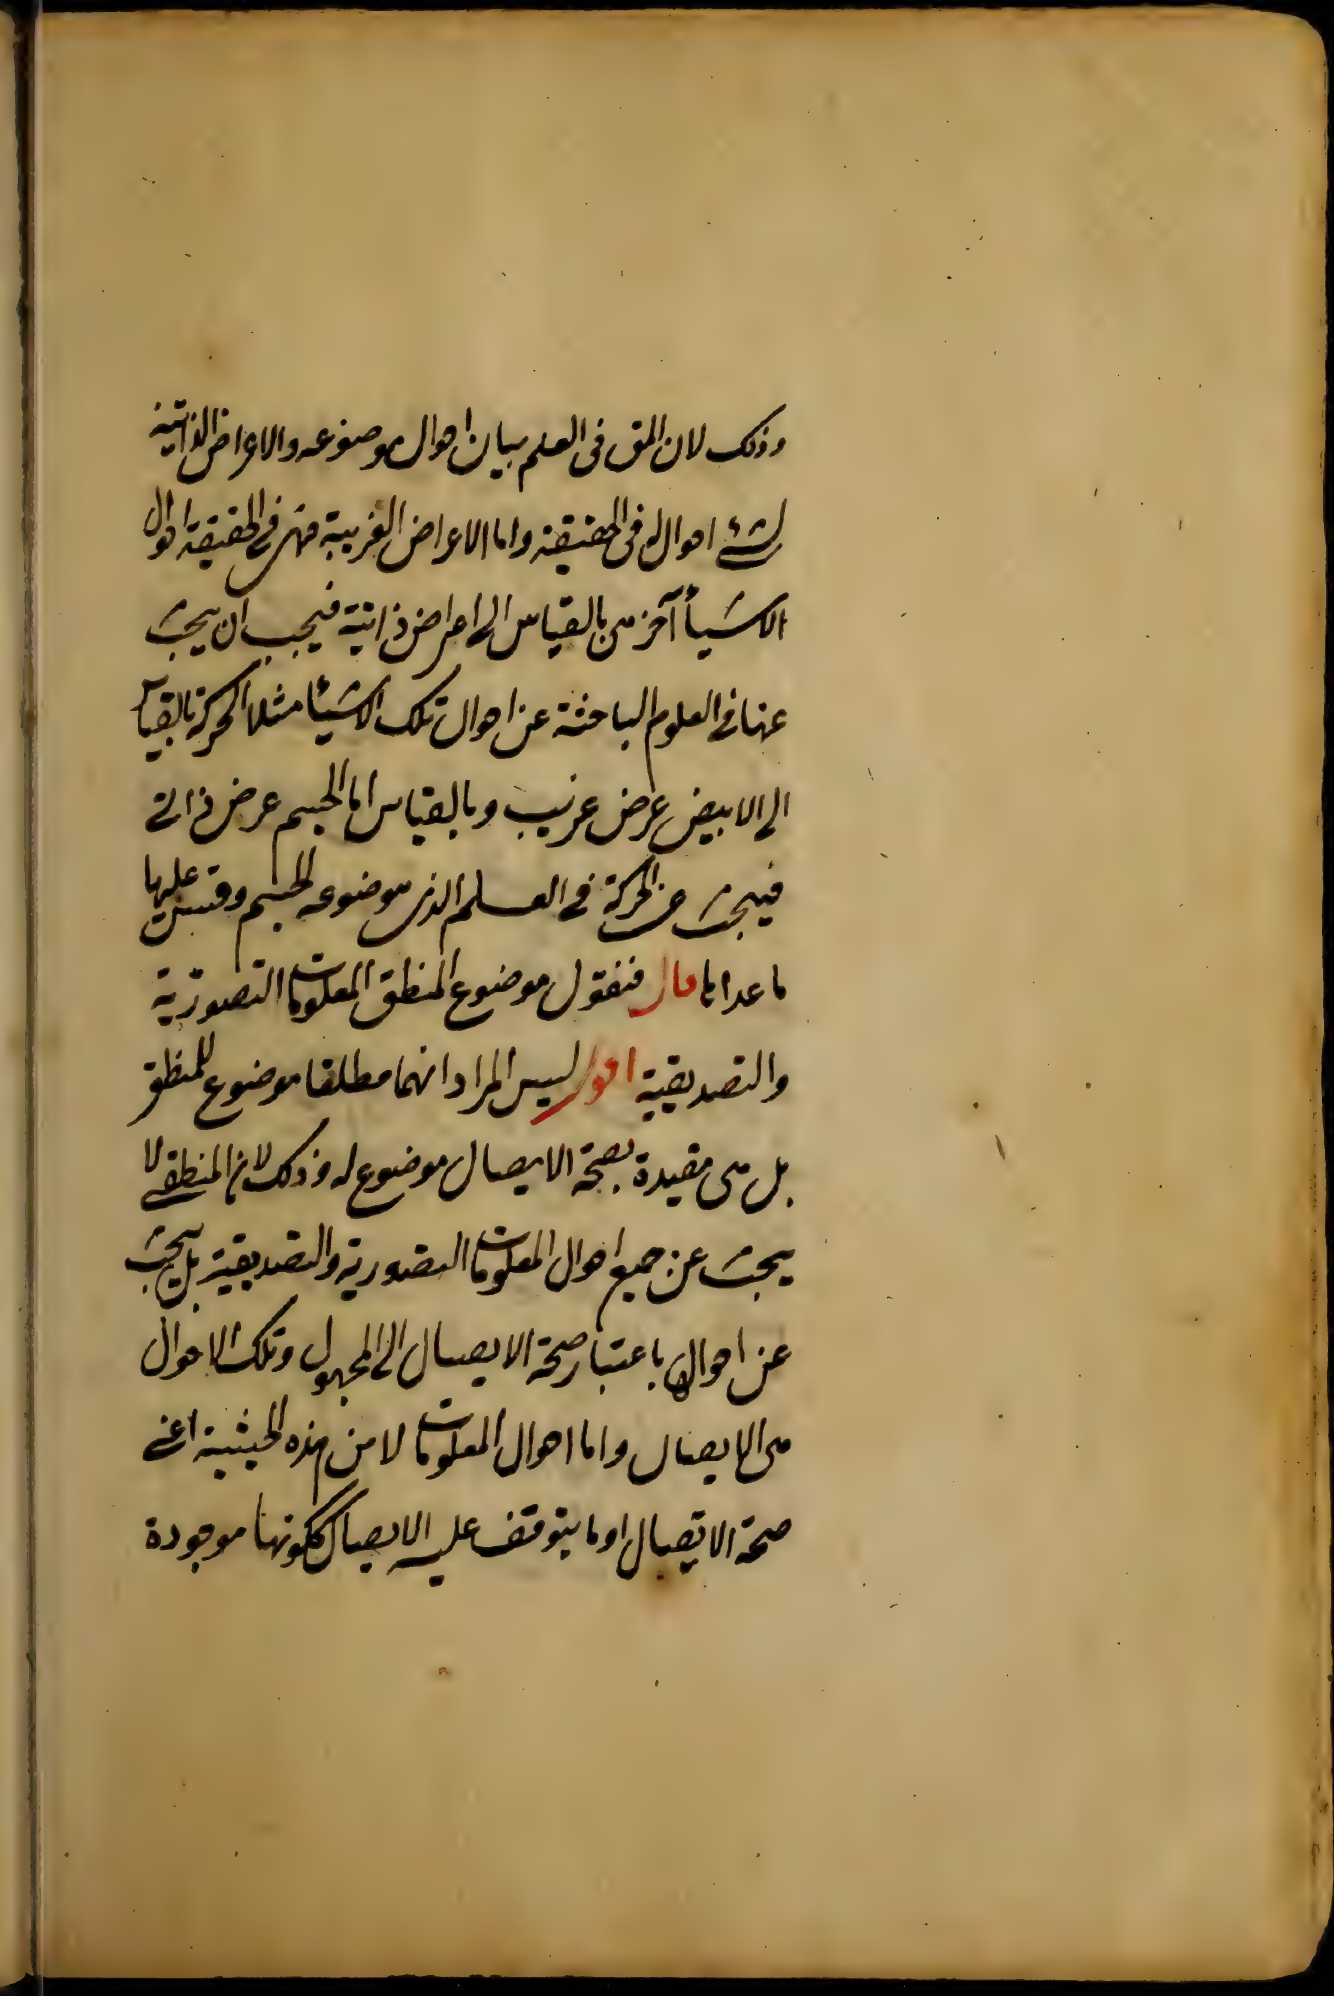 وذلك لان المق فى العلم بيان احوال موضوعه والاعراض الذاتية
لشئ احوال له فى الحقيقة واما الاعراض الغريبة فهى فى الحقيقة احوال
الاشيأ آخر هى بالقياس الى اعراض ذاتية فيجب ان يبحث
عنها فى العلوم الباحثة عن احوال تلك الاشيأ مثلا الحركة بالقياس
الى الابيض عرض غريب وبالقياس الى الجسم عرض ذاتى
فيبحث عن الحركة فى العلم الذى موضوعه الجسم وقس عليها
ما عداها قال فنقول موضوع المنطق المعلومات التصورية
والتصديقية اقول ليس المراد انهما مطلقا موضوع للمنطق
بل هى مقيدة بصحة الايصال موضوع له وذلك لان المنطقى لا
يبحث عن جميع احوال المعلومات التصورية والتصديقية بل يبحث
عن احوالها باعتبار صحة الايصال الى المجهول وتلك الاحوال
هى الايصال واما احوال المعلومات لا من هذه الحيثية اعنى
صحة الايصال او ما يتوقف عليه الايصال ككونها موجودة